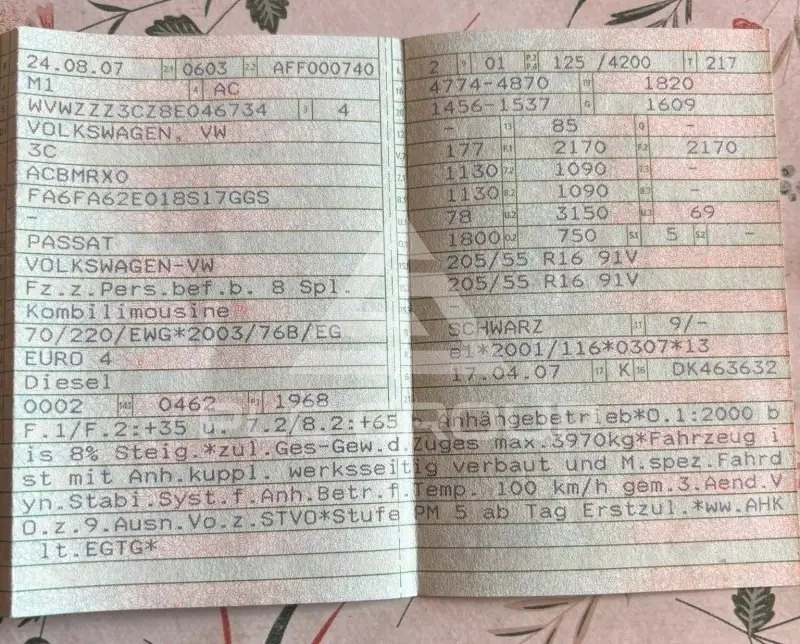 24.08.07 2.1 0603 2.2 AFF000740
M1 4 AC
WVWZZZ3CZ8E046734 3 4
VOLKSWAGEN, VW
3C
ACBMRX0
FA6FA62E018S17GGS
-
PASSAT
VOLKSWAGEN-VW
Fz.z.Pers.bef.b. 8 Spl.
Kombilimousine
70/220/EWG*2003/76B/EG
EURO 4
Diesel
0002 0462 1968
2 9 01 P.2 P.4 125 /4200 T 217
4774-4870 1820
1456-1537 G 1609
- 13 85 Q -
177 F.1 2170 F.2 2170
1130 7.2 1090 7.3 -
1130 8.2 1090 8.3 -
78 U.2 3150 U.3 69
1800 O.2 750 S.1 5 S.2 -
205/55 R16 91V
205/55 R16 91V
-
SCHWARZ 11 9/-
e1*2001/116*0307*13
17.04.07 17 K 16 DK463632
F.1/F.2:+35 u. 7.2/8.2:+65 b. Anhängebetrieb*O.1:2000 b
is 8% Steig.*zul.Ges-Gew.d.Zuges max.3970kg*Fahrzeug i
st mit Anh.kuppl. werksseitig verbaut und M.spez.Fahrd
yn.Stabi.Syst.f.Anh.Betr.f.Temp. 100 km/h gem.3.Aend.V
O.z.9.Ausn.Vo.z.STVO*Stufe PM 5 ab Tag Erstzul.*ww.AHK
lt.EGTG*